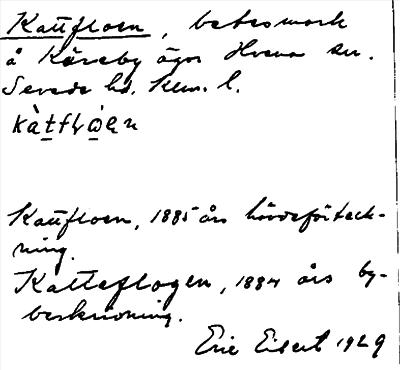 Kattfloen, betesmark
å Kåreby ägor Hvena sn.
Sevede hd. Klm. l.
Kattfloen, 1885 års hördeförteck-
ning.
Katteflogen, 1884 års by-
beskrivning.
Eric Elsert 1929